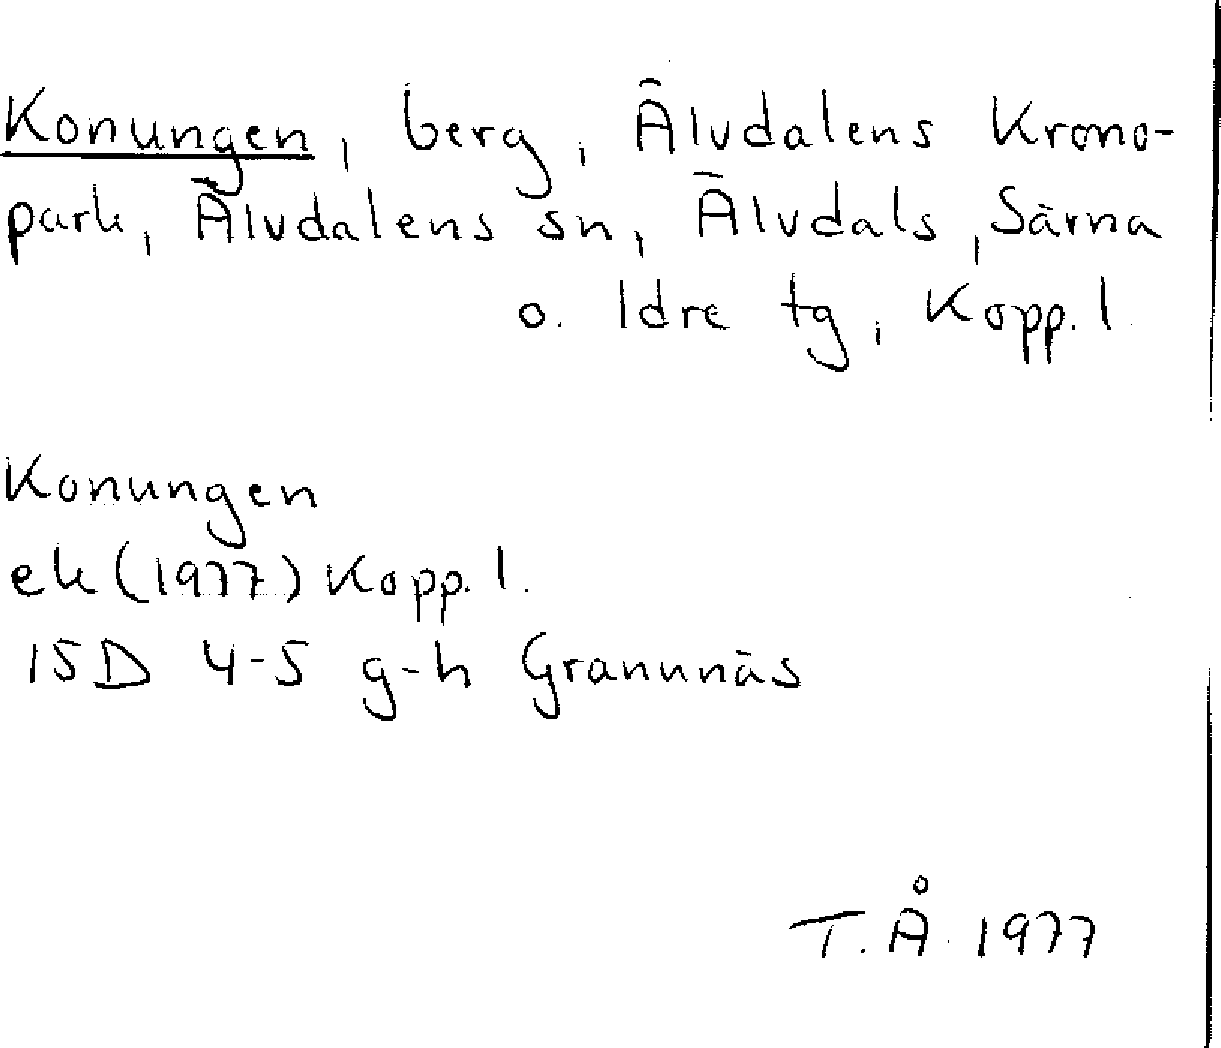 Konungen, berg, Älvdalens Krono-
park, Älvdalens sn, Älvdals, Särna
o. Idre tg, Kopp. l.
Konungen
ek (1977) Kopp. l.
15D 4-5 g-h Granunnäs
T.Å. 1977